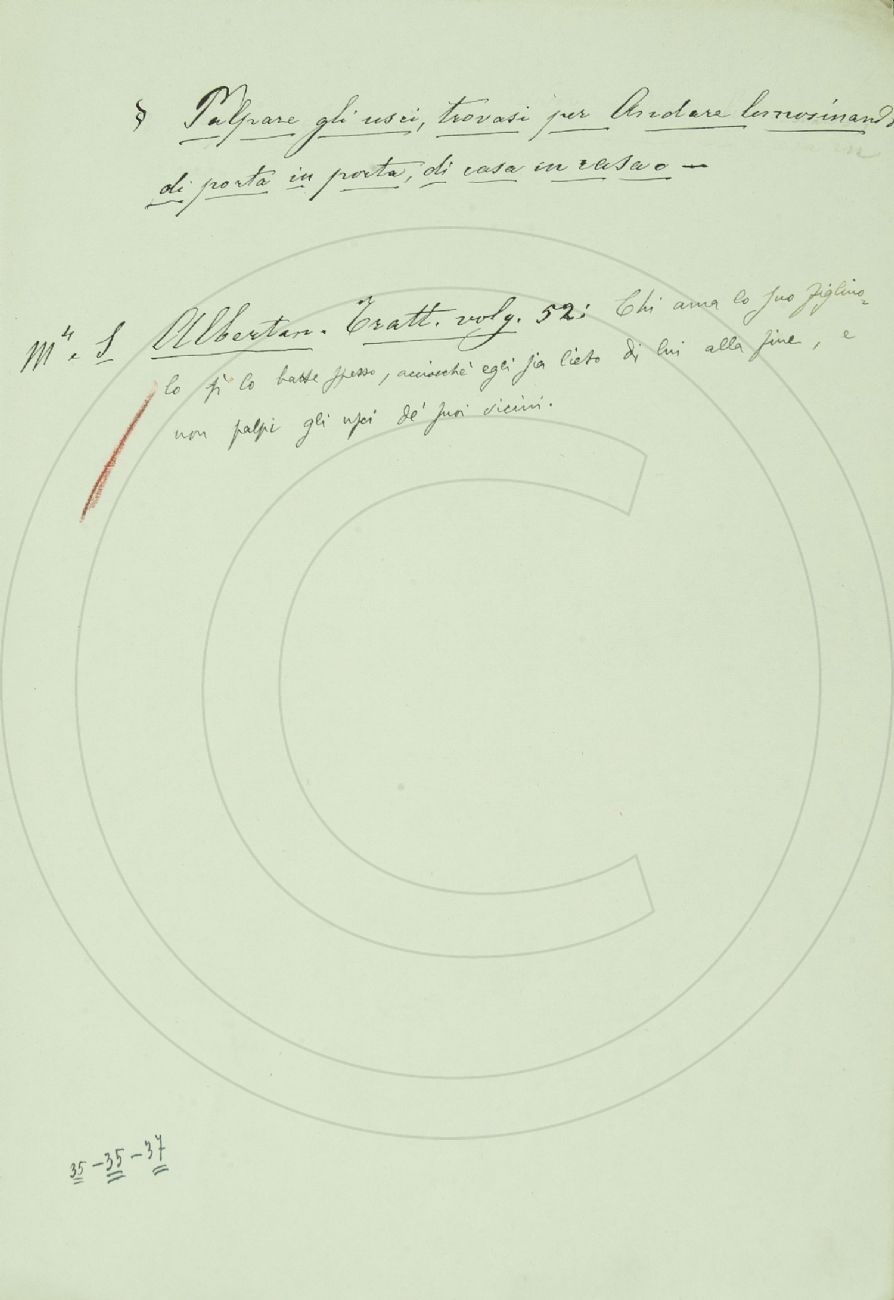 § Palpare gli usci, trovasi per Andare limosinando
di porta in porta, di casa in casa. —
M⁴. S Albertan. Tratt. volg. 52: Chi ama lo suo figliuo-
lo sì lo batte spesso, acciocchè egli sia lieto di lui alla fine, e
non palpi gli usci de' suoi vicini.
35-35-37